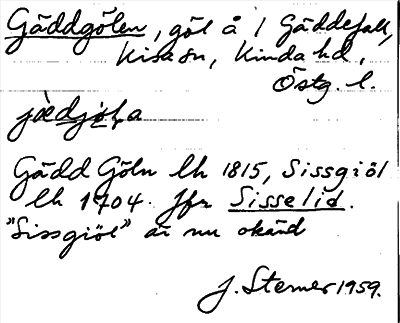 Gäddgölen, göl å 1 Gäddefall,
Kisa sn, Kinda hd,
Östg. l.
jæ̀djöḷa
Gädd Göln lh 1815, Sissgiöl
lh 1704. Jfr Sisselid.
"Sissgiöl" är nu okänd
J. Sterner 1959.